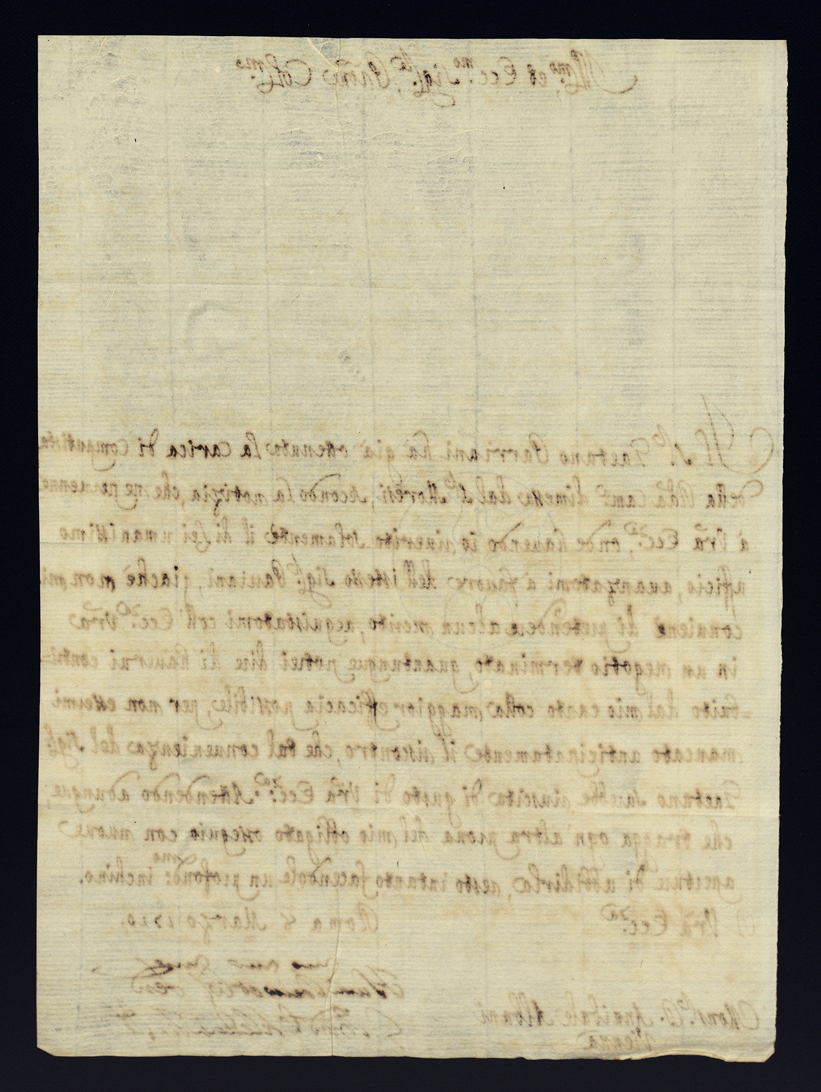 Ill.mo ed Ecc.mo Sig.re Prõne Coll.mo
Il S.r Gaetano Parriani hà già ottenuta la carica di Computista
della Cam.a dimessa dal S.r Moresi, secondo la notizia, che ne pervenne
à Vrã Ecc.za, onde havendo io riverito solamente il di Lei umanissimo
ufficio, avanzatomi à favore dell'istesso Sig.r, giachè non mi
conviene di pretendere alcun merito, acquistatomi coll'Ecc.za Vrã
in un negotio terminato, quantunque potrei dire di havervi contri=
=buito dal mio canto colla maggior efficacia possibile, per non essermi
mancato anticipatamente il riscontro, che tal convenienza del Sig.r
Gaetano sarebbe riuscita di gusto di Vrã Ecc.za. Attendendo adunque,
che tragga ogn'altra prova del mio obbligato ossequio con nuove
aperture di ubbidirla, resto intanto facendole un profond.mo inchino.
Di Vrã Ecc.za Roma 8 Marzo 1710.
Mons.r D. Annibale Albani
Vienna